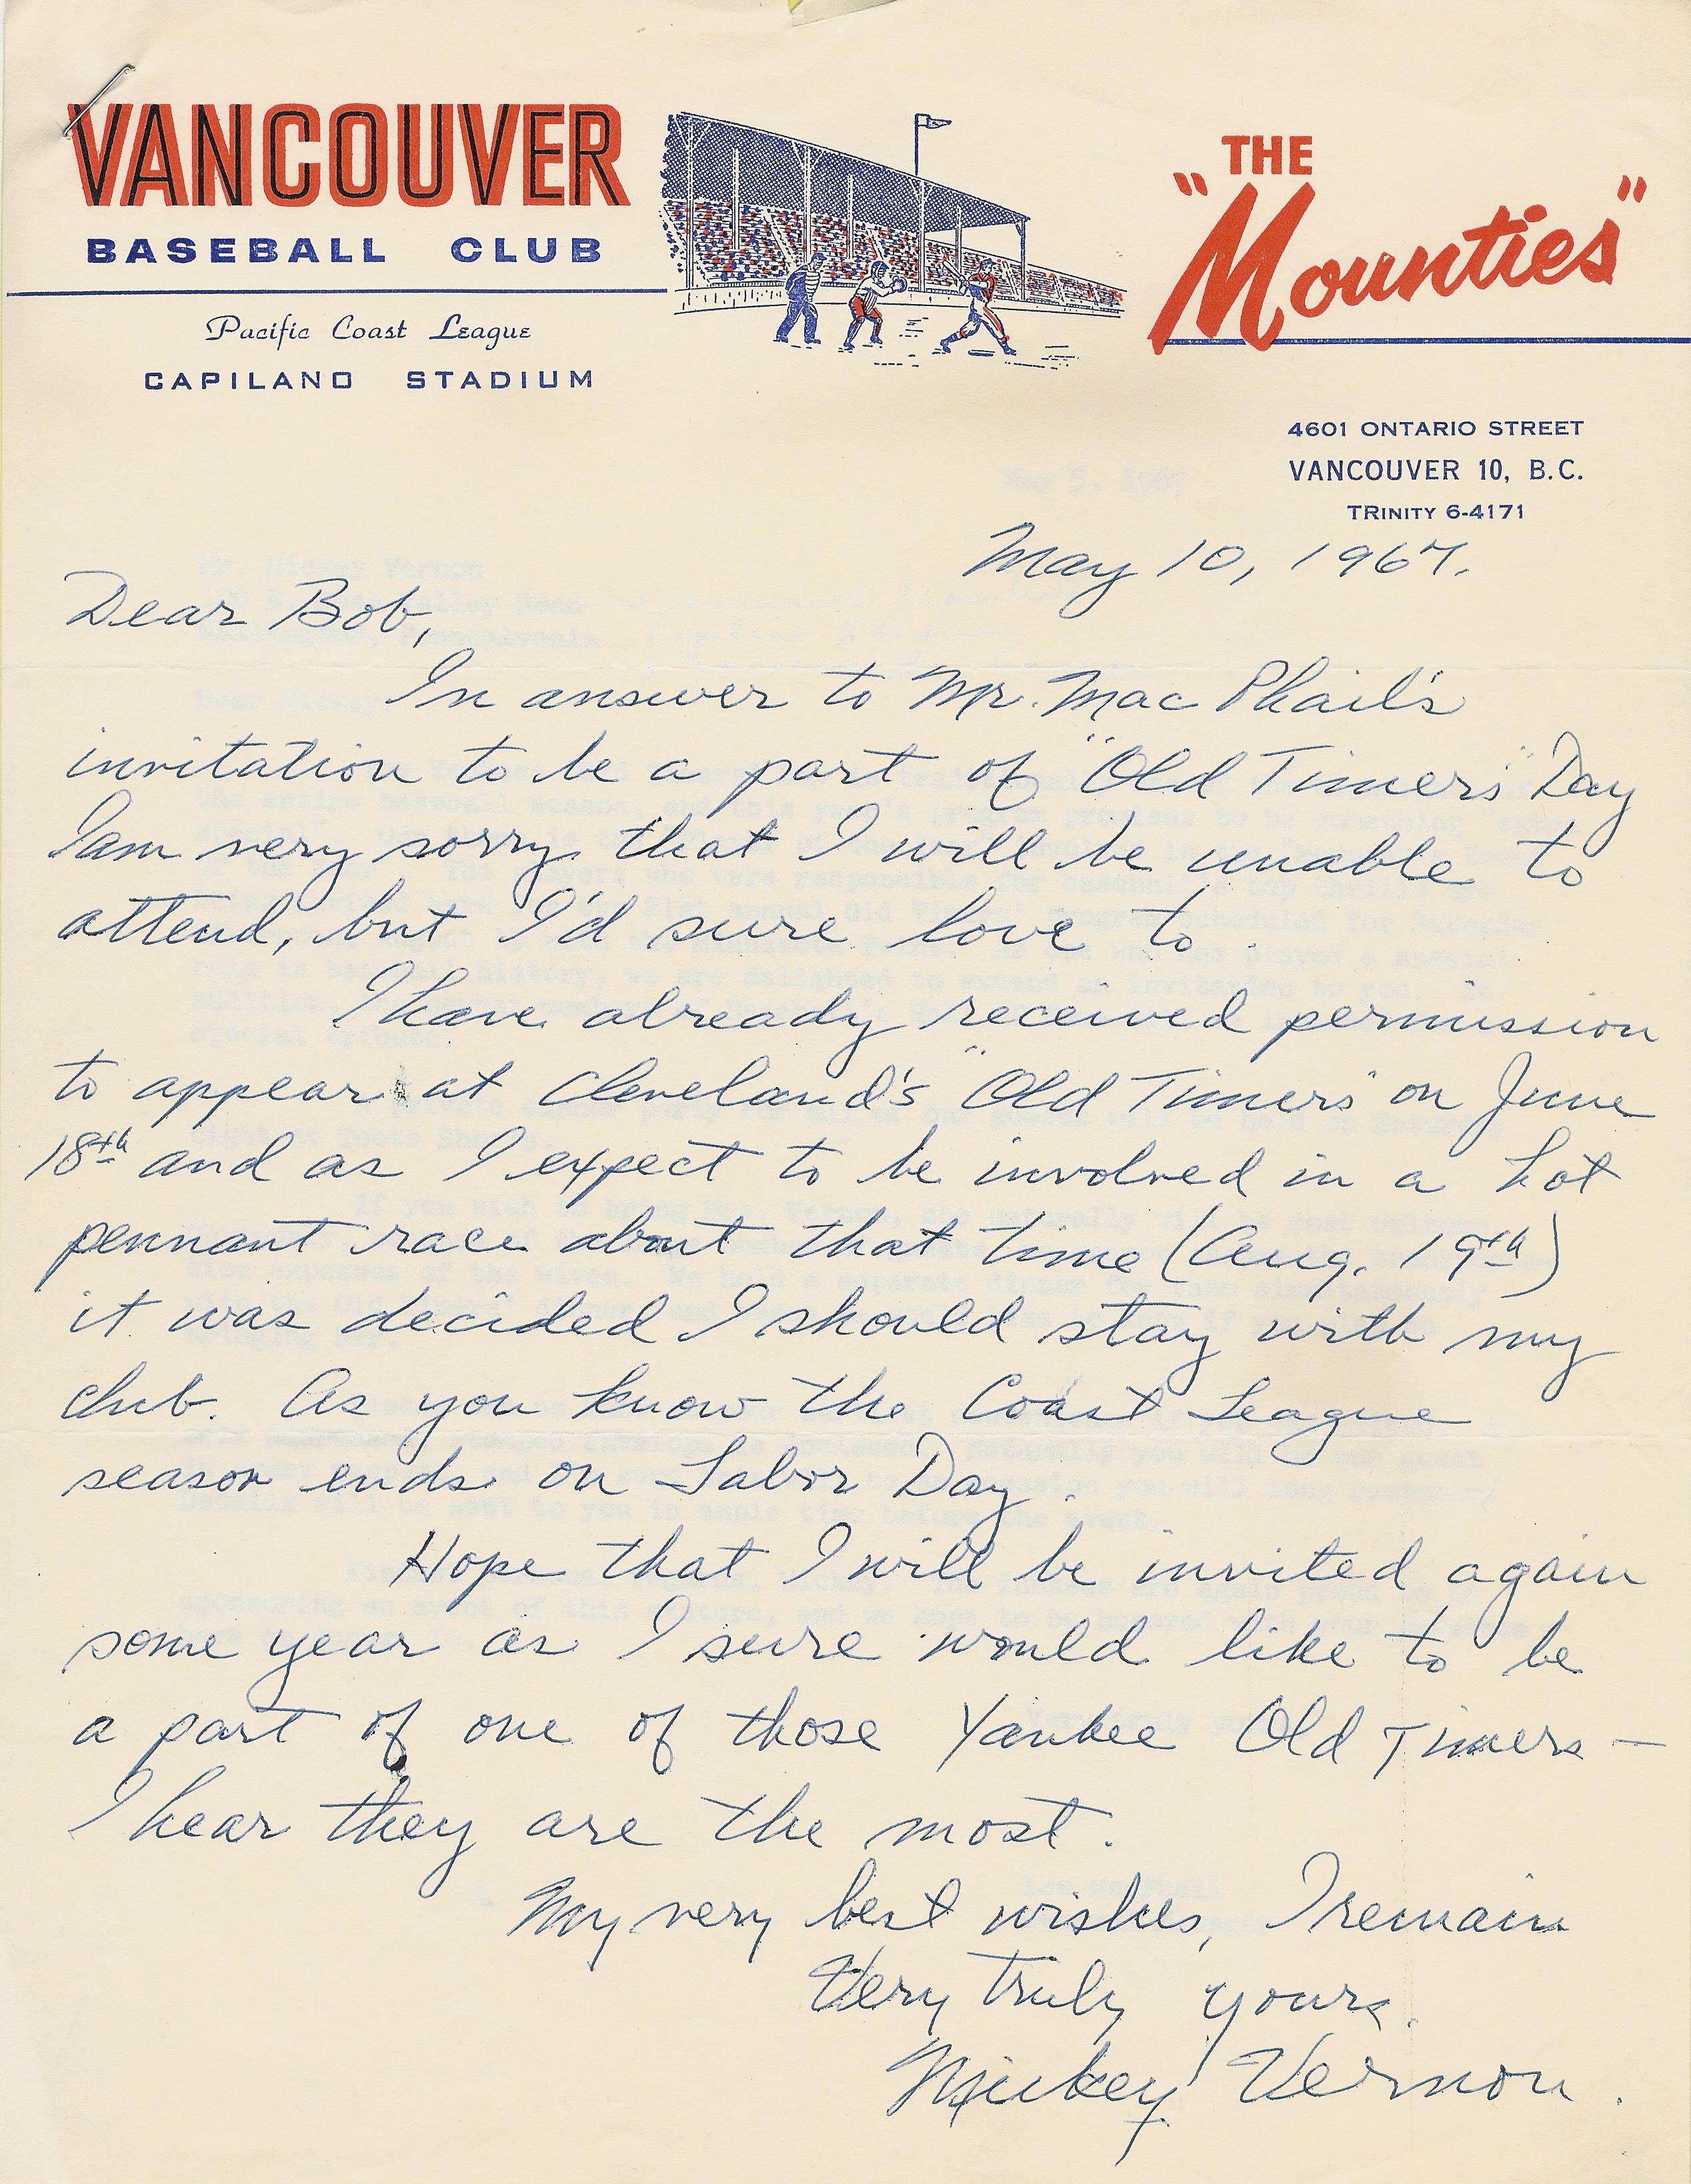 VANCOUVER
BASEBALL CLUB
Pacific Coast League
CAPILANO STADIUM
THE
"Mounties"
4601 ONTARIO STREET
VANCOUVER 10, B.C.
TRINITY 6-4171
May 10, 1967.
Dear Bob,
In answer to Mr. Mac Phail's
invitation to be a part of "Old Timers" Day
I am very sorry that I will be unable to
attend, but I'd sure love to.
I have already received permission
to appear at Cleveland's "Old Timers" on June
18th and as I expect to be involved in a hot
pennant race about that time (Aug. 19th)
it was decided I should stay with my
club. As you know the Coast League
season ends on Labor Day.
Hope that I will be invited again
some year as I sure would like to be
a part of one of those Yankee Old Timers —
I hear they are the most.
My very best wishes, I remain
Very truly yours.
Mickey Vernon.